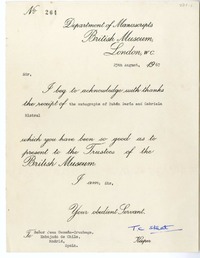 No 261
Department of Manuscripts
British Museum,
London, W.C
27th August, 19
Sir,
I beg to acknowledge with thanks
the receipt of the autographs of Rubén Darío and Gabriela
Mistral
which you have been so good as to
present to the Trustees of the
British Museum
I am, Sir,
Your obedient Servant,
Keeper
To Señor Juan
Embajada de Chile,
Madrid,
Spain.